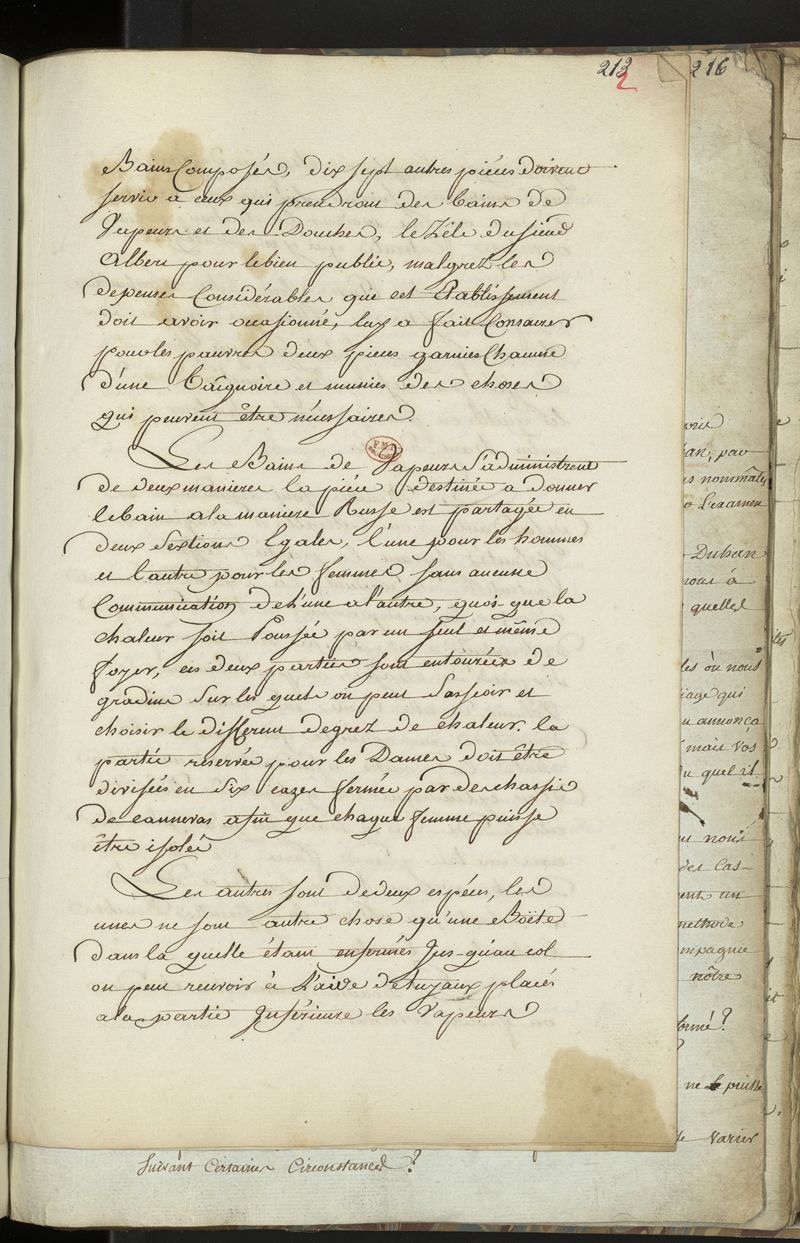 212
216
2
Bains Composés, dix sept autres piéces doivent
servir a ceux qui prendront des bains de
Vapeurs et des Douches, le Zéle du sieur
Albert pour le bien public, malgrez les
depenses Considérables que cet Etablissement
doit avoir occasionné, luy a fait Consacrer
pour les pauvres deux pieces garnies Chacune
d'une baignoire et munies des choses
qui peuvent être nécessaires.
Les Bains de Vapeurs s'administrent
de deux manieres la piéce destinée a donner
le bain a la maniere Russe est partagée en
deux sextions Egales, l'une pour les hommes
et l'autre pour les femmes sans aucune
Communication de l'une a l'autre, quoi-que la
chaleur soit Poussée par un seul et même
foyer, ces deux parties sont entourées de
gradins sur les quels on peut s'asseoir et
choisir le different degrez de chaleur. la
partie reservée pour les Dames doit être
divisées en six cazes fermée par des chassis
de cannevas afin que chaque femme puisse
être isolée
Les autres sont de deux espéces, les
unes ne sont autre chose qu'une Boëte
dans la quelle étant enfermés Jus-qu'au col
on peut recevoir à l'aide de tuyaux placés
a la partie Inférieure les Vapeurs
suivant Certaines Circonstances ?
an, par
s nommât
Examen
Duhan
nous à
quelles
les où nous
iage qui
annonça
mais vos
quel il
nous
des Cas-
ent un
methode
mpagnie
nôtre
formé ?
?
ne le puisse
varier